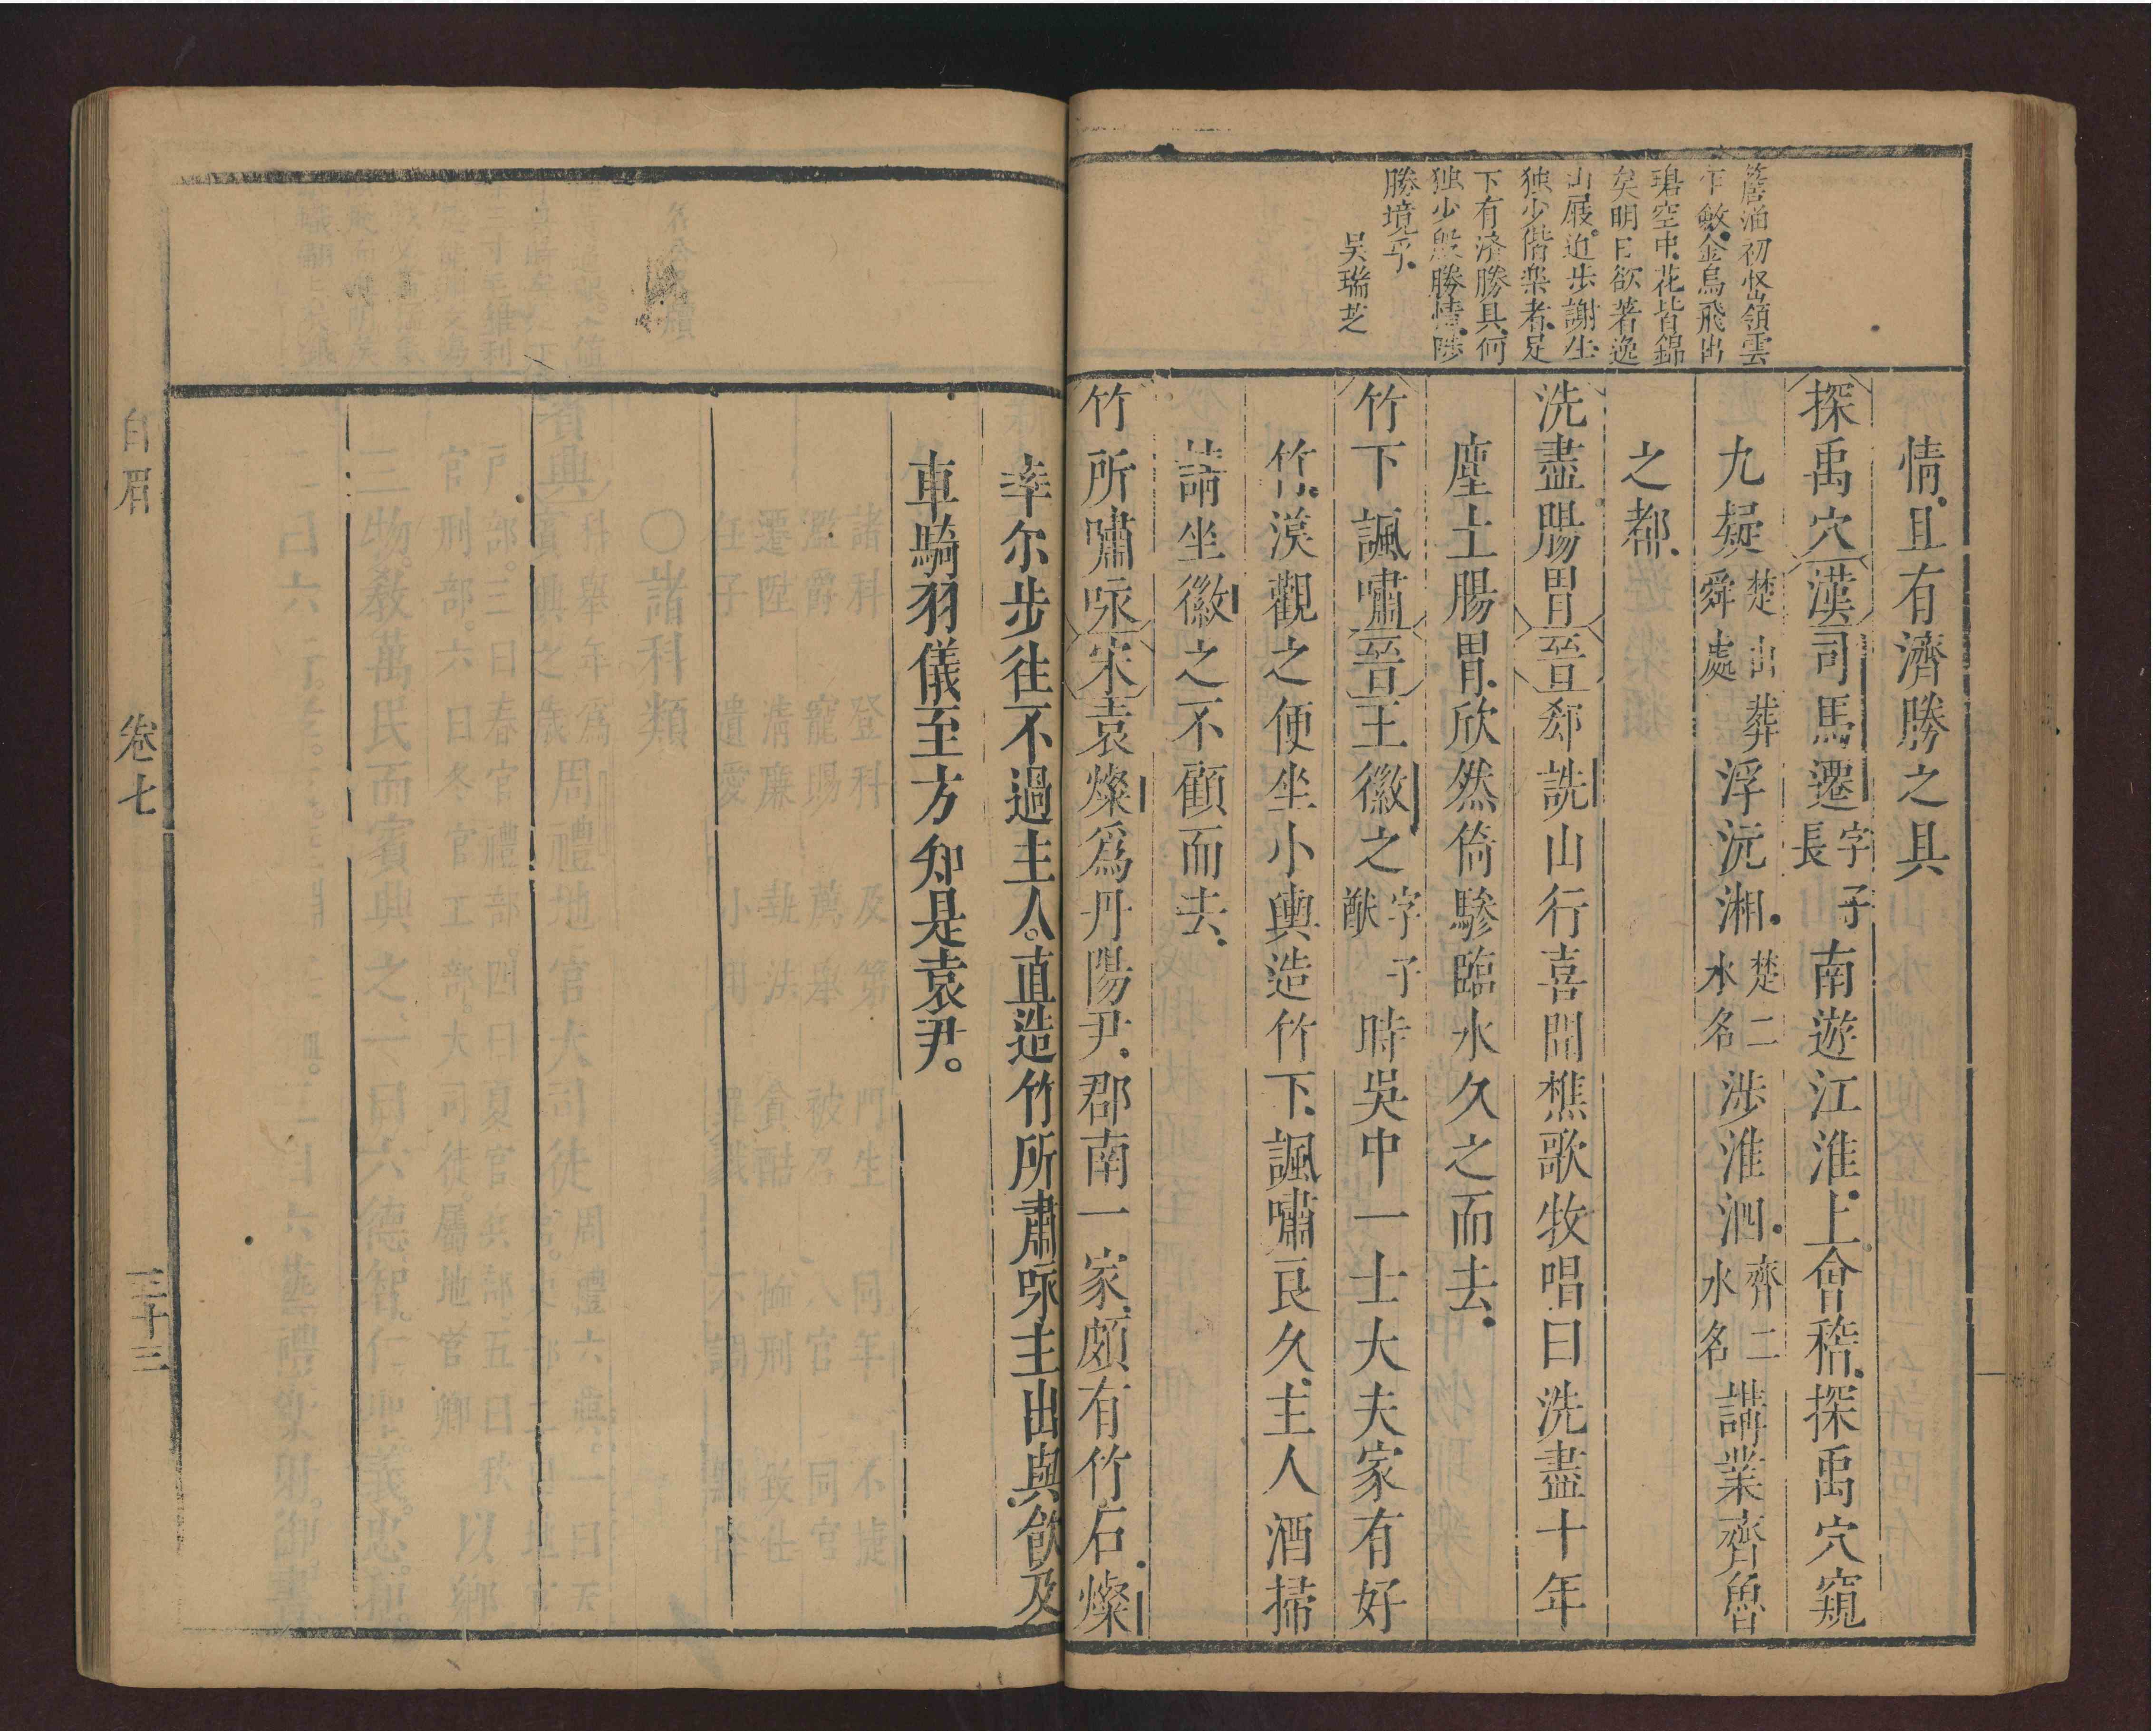 簷溜初收嶺雲
乍斂金烏飛出
碧空中花皆錦
矣明日欲著逸
山屐近步謝生
独少偕楽者足
下有済勝具何
独少殷勝情陟
勝境乎
吴瑞芝
情且有濟勝之具
探禹穴漢司馬遷字子長南遊江淮上會稽探禹穴窺
九疑楚山舜葬處浮沅湘楚二水名涉淮泗齊二水名講業齊魯
之都
洗盡腸胃晉郄詵山行喜聞樵歌牧唱曰洗盡十年
塵土腸胃欣然倚驂臨水久之而去
竹下諷嘯晉王徽之字子猷時吳中一士大夫家有好
竹漠觀之便坐小輿造竹下諷嘯良久主人酒掃
請坐徽之不顧而去
竹所嘯咏宋袁燦爲丹陽尹郡南一家頗有竹石燦
率尔步往不過主人直造竹所肅咏主出與飲及
車騎羽儀至方知是袁尹
白眉
卷七
三十三